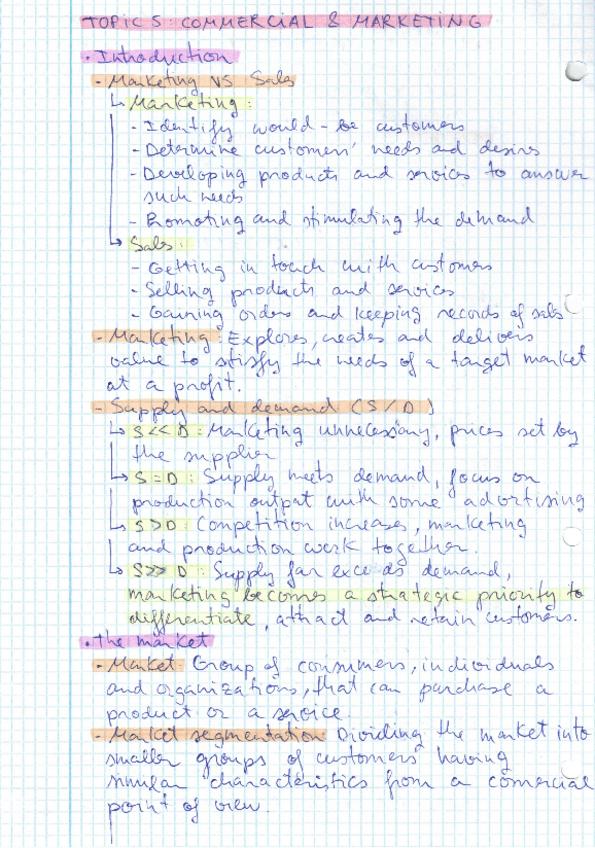 TOPIC 5: COMMERCIAL & MARKETING
· Introduction
- Marketing VS Sales
↳ Marketing:
- Identify would-be customers
- Determine customers' needs and desires
- Developing products and services to answer
such needs
- Promoting and stimulating the demand
↳ Sales:
- Getting in touch with customers
- Selling products and services
- Gaining orders and keeping records of sales
- Marketing: Explores, creates and delivers
value to satisfy the needs of a target market
at a profit.
- Supply and demand (S/D)
↳ S<<D: Marketing unnecessary, prices set by
the supplier
↳ S=D: Supply meets demand, focus on
production output with some advertising
↳ S>D: Competition increases, marketing
and production work together.
↳ S>>D: Supply far exceeds demand,
marketing becomes a strategic priority to
differentiate, attract and retain customers.
· The market
- Market: Group of consumers, individuals
and organizations, that can purchase a
product or a service.
- Market segmentation: Dividing the market into
smaller groups of customers having
similar characteristics from a comercial
point of view.